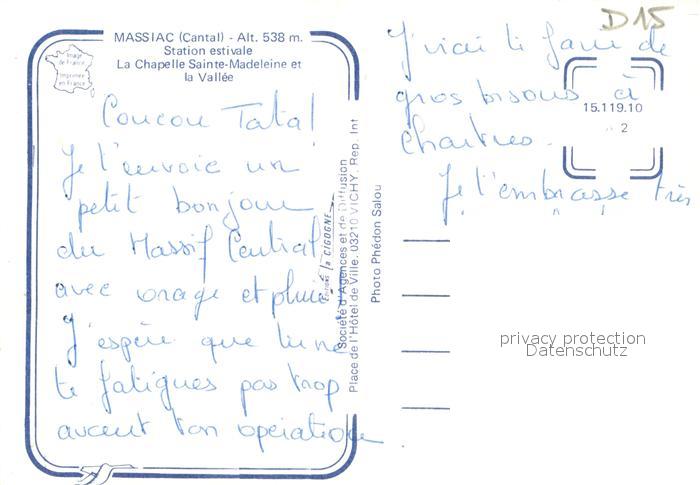 MASSIAC (Cantal) - Alt. 538 m.
Station estivale
La Chapelle Sainte-Madeleine et
la Vallée
Image
de France
Imprimée
en France
Coucou Tata!
Je t'envoie un
petit bonjour
du Massif Central
avec orage et pluie
J'espère que tu ne
te fatigues pas trop
avant ton opération
EDITIONS la CIGOGNE
Société d'Agences et de Diffusion
Place de l'Hôtel de Ville. 03210 VICHY. Rep. Int
Photo Phédon Salou
D15
J'irai te faire de
gros bisous à
Chartres.
Je t'embrasse très
15.119.10
2
privacy protection
Datenschutz